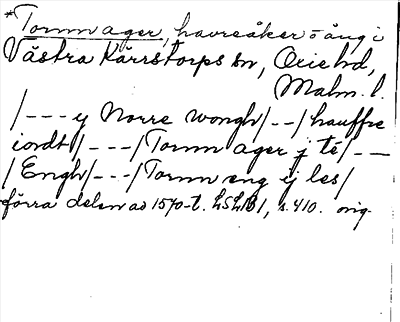 *Tormm ager, havreåker o äng i
Västra Kärrstorps sn, Oxie hd,
Malm. l.
/---y Norre wongh/--/hauffre
iordt/---/Tormm ager j té/---
/Engh/---/Tormm eng ij les/
förra delen av 1570-t. LSLB1, s. 410. orig.